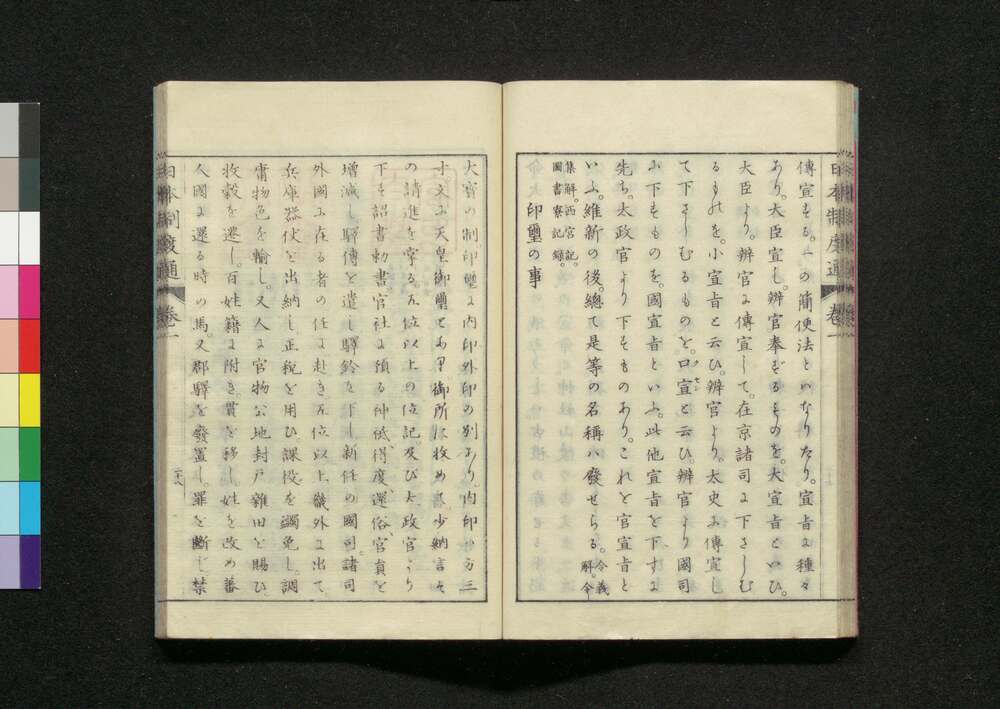 傳宣する。一の簡便法とハなりたり。宣旨に種々
あり。大臣宣し。辨官奉ずるものを。大宣旨といひ。
大臣より。辨官に傳宣して。在京諸司に下さしむ
るものを。小宣旨と云ひ。辨官より。太史に傳宣し
て下さしむるものを。口宣と云ひ。辨官より國司
に下すものを。國宣旨といふ。此他宣旨を下すに
先ち。太政官より下すものあり。これを官宣旨と
いふ。維新の後。總て是等の名稱ハ發せらる。令義解。令
集解。西宮記。
圖書寮記錄。
印璽の事
日本制度通 卷一
大寶の制。印璽に內印外印の別あり。內印ハ方三
寸。文に天皇御璽とあり。御所に收め。少納言そ
の請進を掌る。五位以上の位記。及び太政官より
下す詔書勅書。官社に預る神祇。得度還俗官員を
增減し。驛傳を遣し。驛鈴を下し。新任の國司。諸司
外國に在る者の任に赴き。五位以上畿外に出て。
兵庫器仗を出納し。正稅を用ひ。課役を蠲免し。調
庸物色を輸し。又人に官物公地封戶雜田を賜ひ。
牧穀を遷し。百姓籍に附き。貫を移し。姓を改め。蕃
人國に還る時の馬。又郡驛を發置し。罪を斷じ。禁
日本制度通 卷一